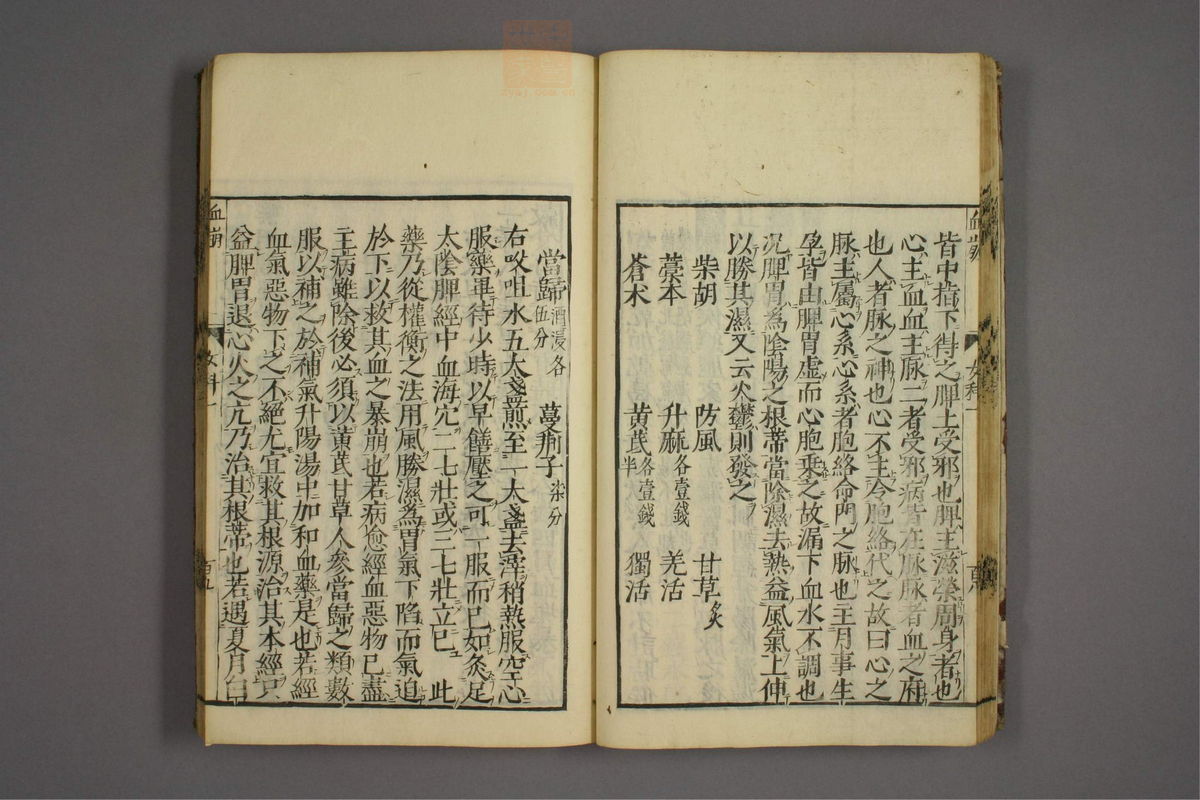 血崩
女科一
皆中指下得之脾上受邪也脾主滋榮周身者也
心主血血主脉二者受邪病皆在脉脉者血之府
也人者脉之神也心不主令胞絡代之故曰心之
脉主屬心系心系者胞絡命門之脉也主月事生
孕皆由脾胃虛而心胞乘之故漏下血水不調也
况脾胃為陰陽之根蒂當除濕去熱益風氣上伸
以勝其濕又云火鬱則發之
柴胡 防風 甘草炙
藁本 升麻各壹錢 羌活
蒼术 黄芪各壹錢半 獨活
當歸酒浸各伍分 蔓荆子柒分
右㕮咀水五大盞煎至一大盞去滓稍熱服空心
服藥畢待少時以早饍壓之可一服而已如灸足
太陰脾經中血海穴二七壯或三七壯立已 此
藥乃從權衡之法用風勝濕為胃氣下陷而氣迫
於下以救其血之暴崩也若病愈經血惡物已盡
主病雖除後必須以黄芪甘草人參當歸之類數
服以補之於補氣升陽湯中加和血藥是也若經
血氣惡物下之不絕尤宜救其根源治其本經只
益脾胃退心火之亢乃治其根蒂也若遇夏月白
血崩
女科一
百五